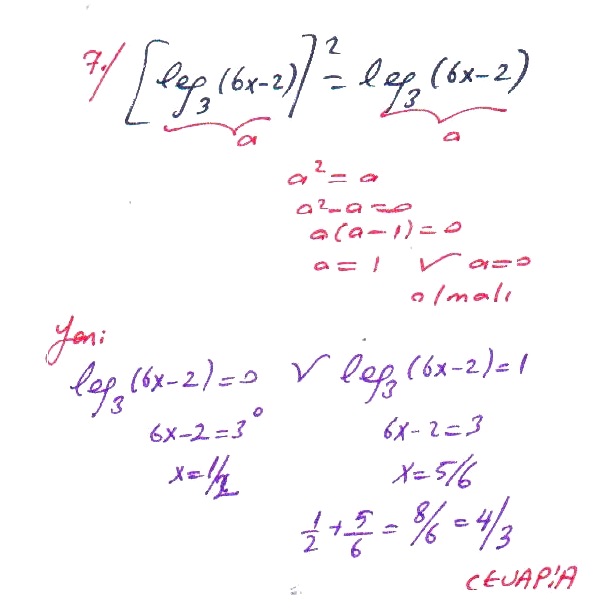 7./ [log₃(6x-2)]² = log₃(6x-2)
a a
a² = a
a²-a=0
a(a-1)=0
a=1 ∨ a=0
olmalı
Yani
log₃(6x-2)=0 ∨ log₃(6x-2)=1
6x-2=3⁰ 6x-2=3
x=1/2 x=5/6
1/2 + 5/6 = 8/6 = 4/3
CEVAP:A